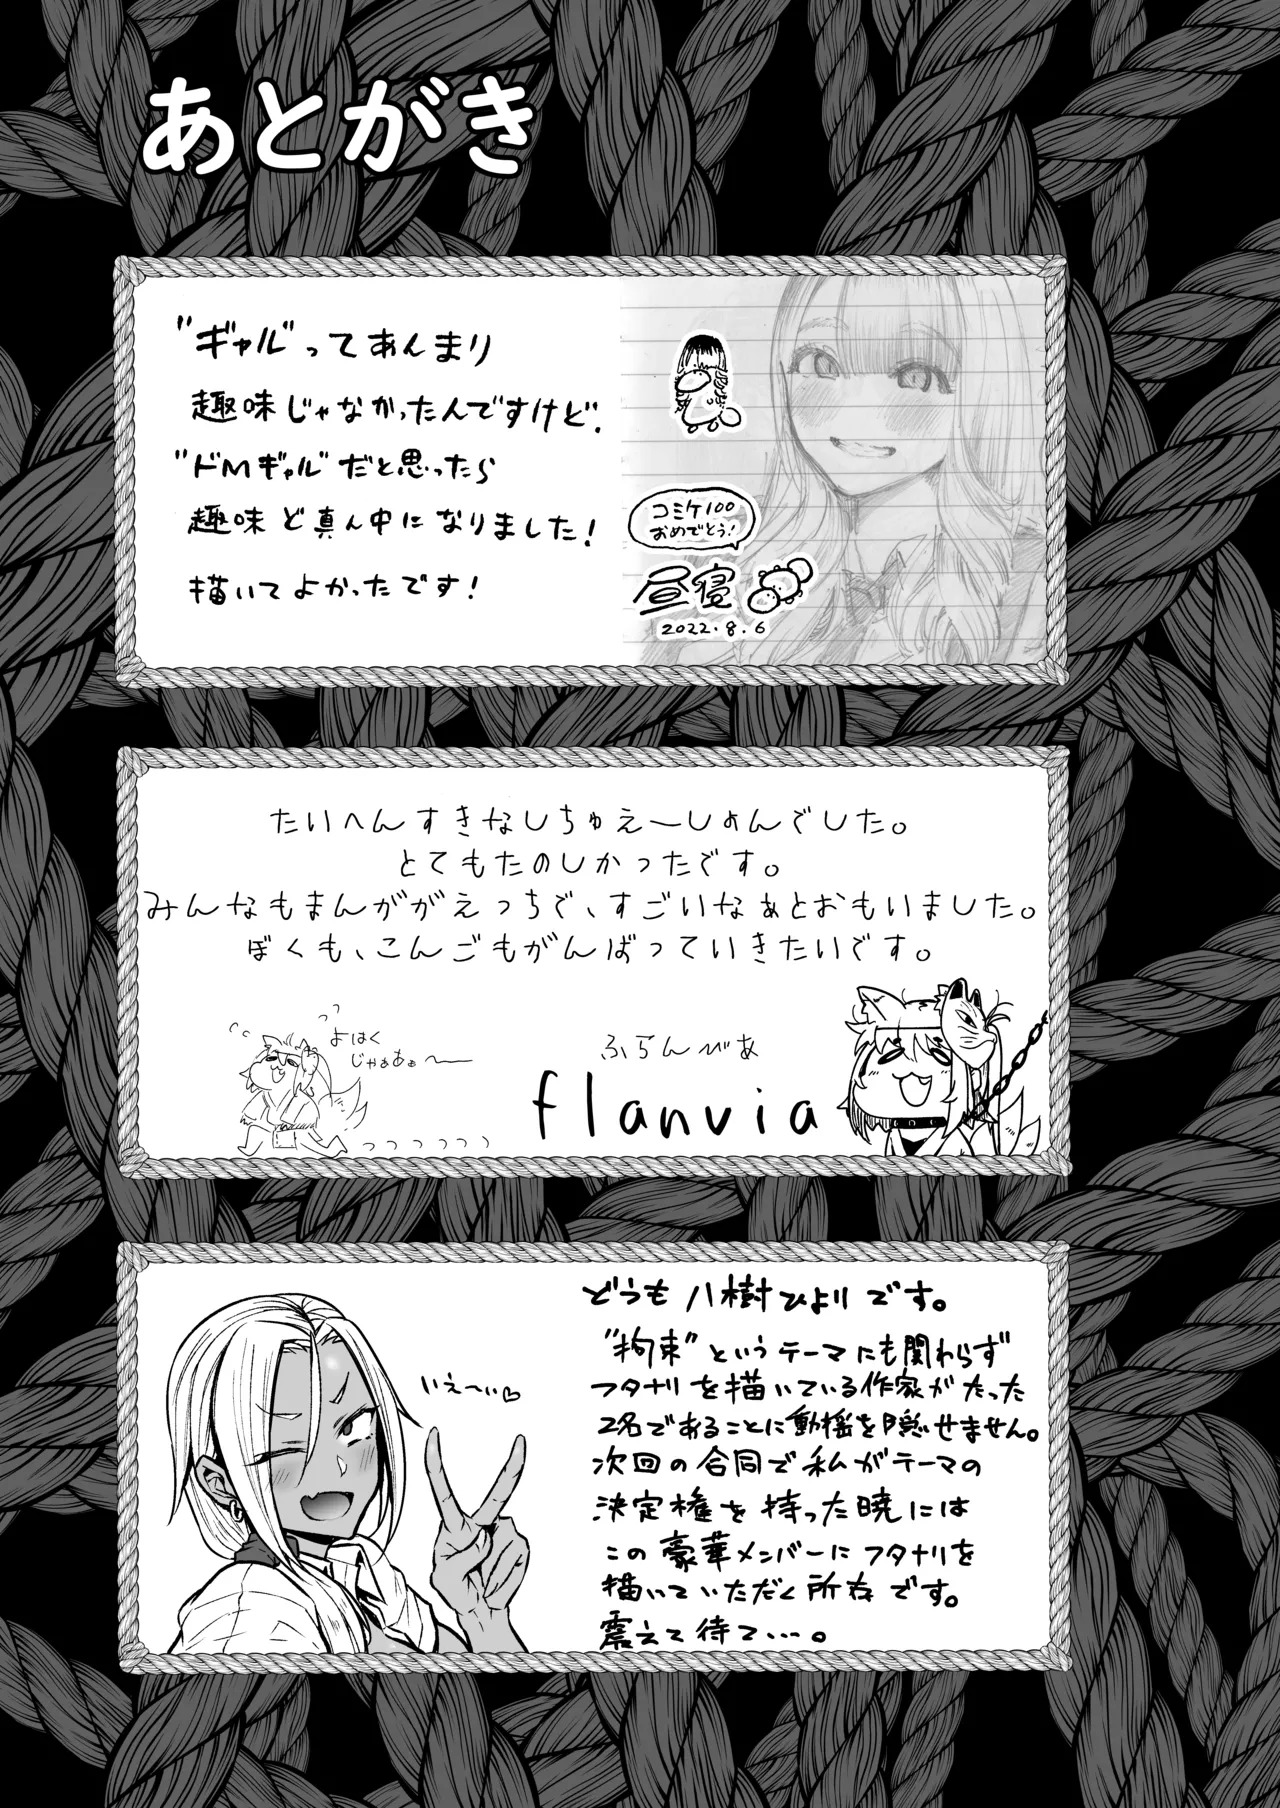 あとがき
"ギャル"ってあんまり
趣味じゃなかったんですけど、
"ドMギャル"だと思ったら
趣味ど真ん中になりました!
描いてよかったです!
コミケ100
おめでとう!
昼寝
2022.8.6
たいへんすきなしちゅえーしょんでした。
とてもたのしかったです。
みんなもまんががえっちで、すごいなぁとおもいました。
ぼくも、こんごもがんばっていきたいです。
よはく
じゃぁあぉ〜
っっっっっっ
ふらんびあ
flanvia
どうも八樹ひよりです。
"拘束"というテーマにも関わらず
フタナリを描いている作家がたった
2名であることに動揺を隠せません。
次回の合同で私がテーマの
決定権を持った暁には
この豪華メンバーにフタナリを
描いていただく所存です。
震えて待て…。
いえ〜い♡